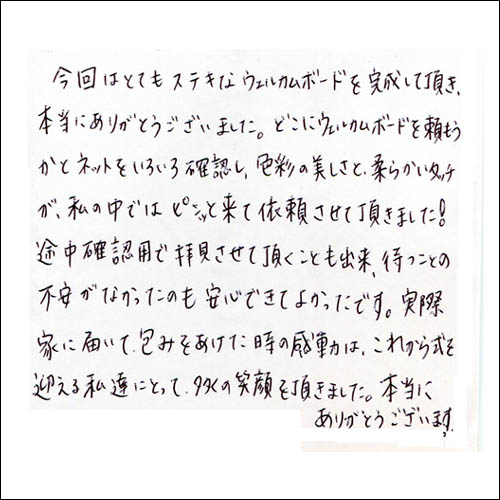 今回はとてもステキなウェルカムボードを完成して頂き、
本当にありがとうございました。どこにウェルカムボードを頼もう
かとネットをいろいろ確認し、色彩の美しさと、柔らかいタッチ
が、私の中ではピンッと来て依頼させて頂きました!
途中確認用で拝見させて頂くことも出来、待つことの
不安がなかったのも安心できてよかったです。実際
家に届いて、包みをあけた時の感動は、これから式を
迎える私達にとって、多くの笑顔を頂きました。本当に
ありがとうございます。